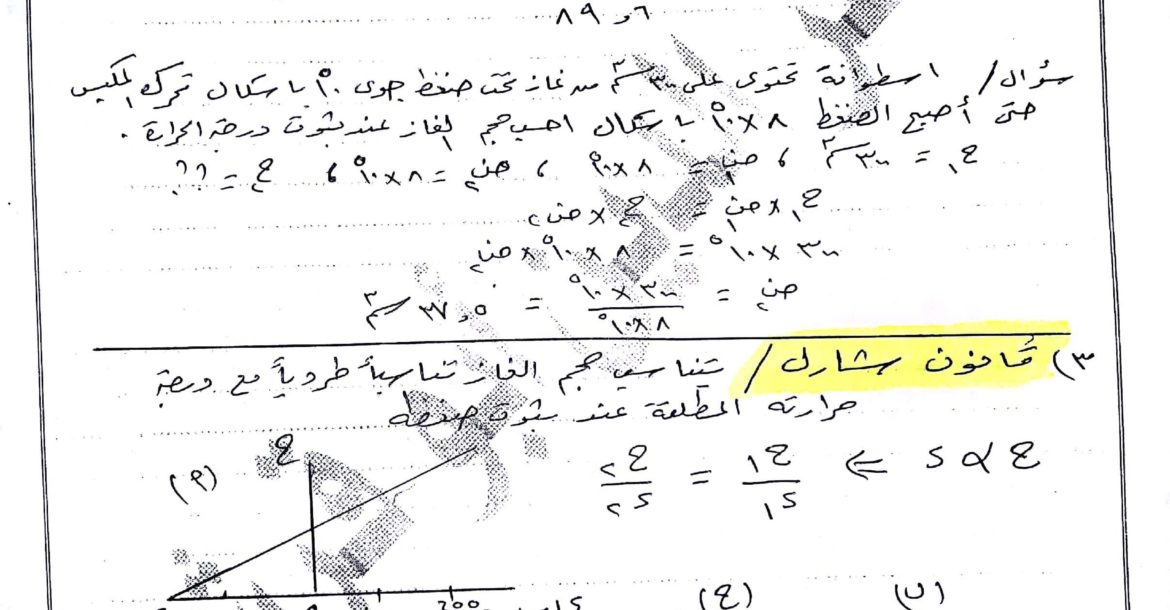 ٨٩٫٦
سؤال / اسطوانة تحتوى على ٣٠٠ سم٣ من غاز تحت ضغط جوى ١٠^٥ باسكال تحرك المكبس
حتى أصبح الضغط ٨ × ١٠^٥ باسكال احسب حجم الغاز عند ثبوت درجة الحرارة .
ح١ = ٣٠٠ سم٣ ، ض١ = ٨ × ١٠^٥ ، ض٢ = ٨ × ١٠^٥ ، ح٢ = ؟؟
ح١ × ض١ = ح٢ × ض٢
٣٠٠ × ١٠^٥ = ٨ × ١٠^٥ × ض٢
ض٢ = ٣٠٠ × ١٠^٥ / ٨ × ١٠^٥ = ٣٧٫٥ سم٣
٣) قانون شارل / يتناسب حجم الغاز تناسباً طردياً مع درجة
حرارته المطلقة عند ثبوت ضغطه
ح ∝ د ⇐ ح١ / د١ = ح٢ / د٢
ح
(٩)
200
(ح)
(ں)